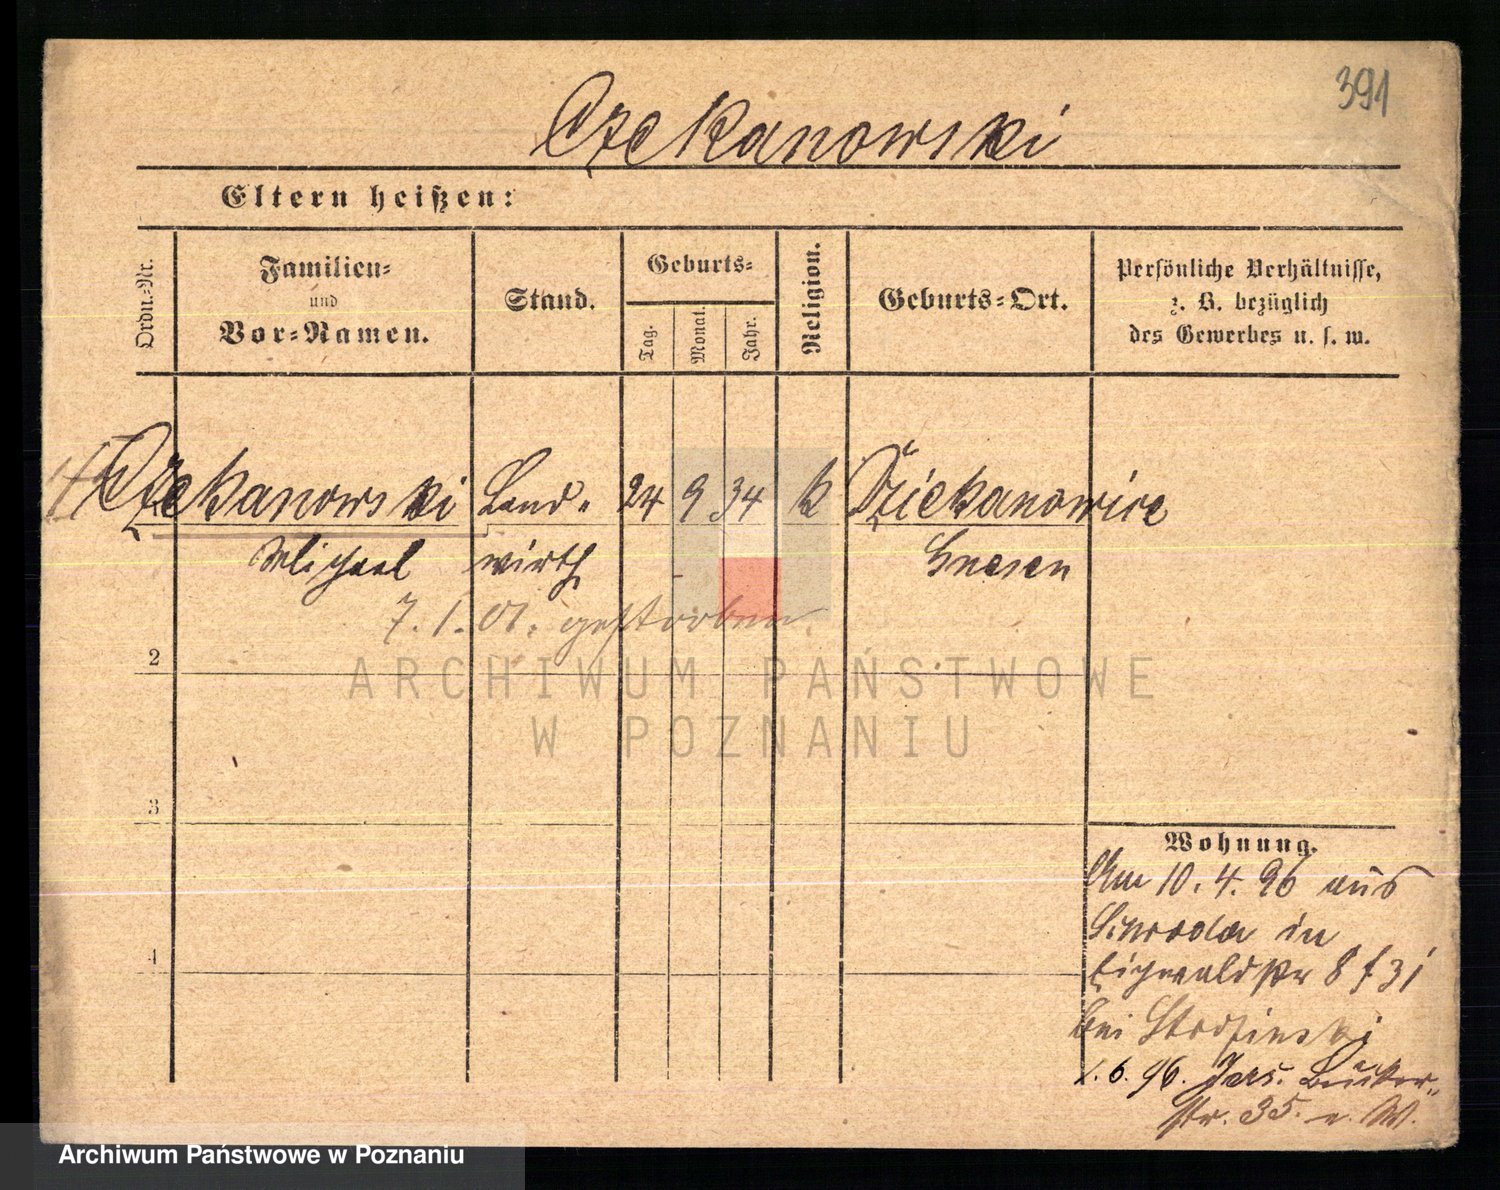 391
Czekanowski
Eltern heißen:
Ordn.-Nr.
Familien-
und
Vor-Namen.
Stand.
Geburts-
Tag.
Monat.
Jahr.
Religion.
Geburts-Ort.
Persönliche Verhältnisse,
z. B. bezüglich
des Gewerbes u. s. w.
Czekanowski Land- 24 9 34 k Dziekanowice
Michael wirth Gnesen
7. 1. 01. gestorben
2
ARCHIWUM PAŃSTWOWE
W POZNANIU
3
Wohnung.
Am 10. 4. 96 aus
Schroda in
Eichwaldstr 8
4
bei
1. 6. 96.
str. 35.
Archiwum Państwowe w Poznaniu